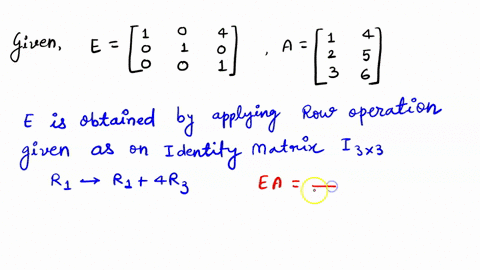 Given, E = [1 0 4; 0 1 0; 0 0 1], A = [1 4; 2 5; 3 6]
E is obtained by applying Row operation
given as on Identity Matrix I₃ₓ₃
R₁ ↔ R₁ + 4R₃ EA =